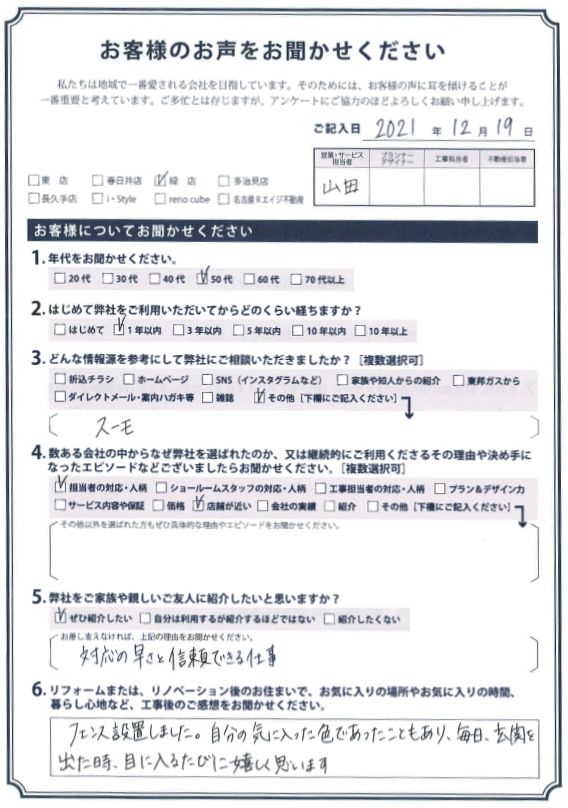 お客様のお声をお聞かせください
私たちは地域で一番愛される会社を目指しています。そのためには、お客様の声に耳を傾けることが
一番重要と考えています。ご多忙とは存じますが、アンケートにご協力のほどよろしくお願い申し上げます。
ご記入日 2021 年 12 月 19 日
営業・サービス担当者 プランナーデザイナー 工事担当者 不動産担当者
山田
□東 店 □春日井店 ☑緑 店 □多治見店
□長久手店 □i・Style □reno cube □名古屋Rエイジ不動産
お客様についてお聞かせください
1. 年代をお聞かせください。
□20代 □30代 □40代 ☑50代 □60代 □70代以上
2. はじめて弊社をご利用いただいてからどのくらい経ちますか？
□はじめて ☑1年以内 □3年以内 □5年以内 □10年以内 □10年以上
3. どんな情報源を参考にして弊社にご相談いただきましたか？［複数選択可］
□折込チラシ □ホームページ □SNS（インスタグラムなど） □家族や知人からの紹介 □東邦ガスから
□ダイレクトメール・案内ハガキ等 □雑誌 ☑その他［下欄にご記入ください］
スーモ
4. 数ある会社の中からなぜ弊社を選ばれたのか、又は継続的にご利用くださるその理由や決め手に
なったエピソードなどございましたらお聞かせください。［複数選択可］
☑担当者の対応・人柄 □ショールームスタッフの対応・人柄 □工事担当者の対応・人柄 □プラン&デザイン力
□サービス内容や保証 □価格 ☑店舗が近い □会社の実績 □紹介 □その他［下欄にご記入ください］
その他以外を選ばれた方もぜひ具体的な理由やエピソードをお聞かせください。
5. 弊社をご家族や親しいご友人に紹介したいと思いますか？
☑ぜひ紹介したい □自分は利用するが紹介するほどではない □紹介したくない
お差し支えなければ、上記の理由をお聞かせください。
対応の早さと信頼できる仕事
6. リフォームまたは、リノベーション後のお住まいで、お気に入りの場所やお気に入りの時間、
暮らし心地など、工事後のご感想をお聞かせください。
フェンス設置しました。自分の気に入った色であったこともあり、毎日、玄関を
出た時、目に入るたびに嬉しく思います